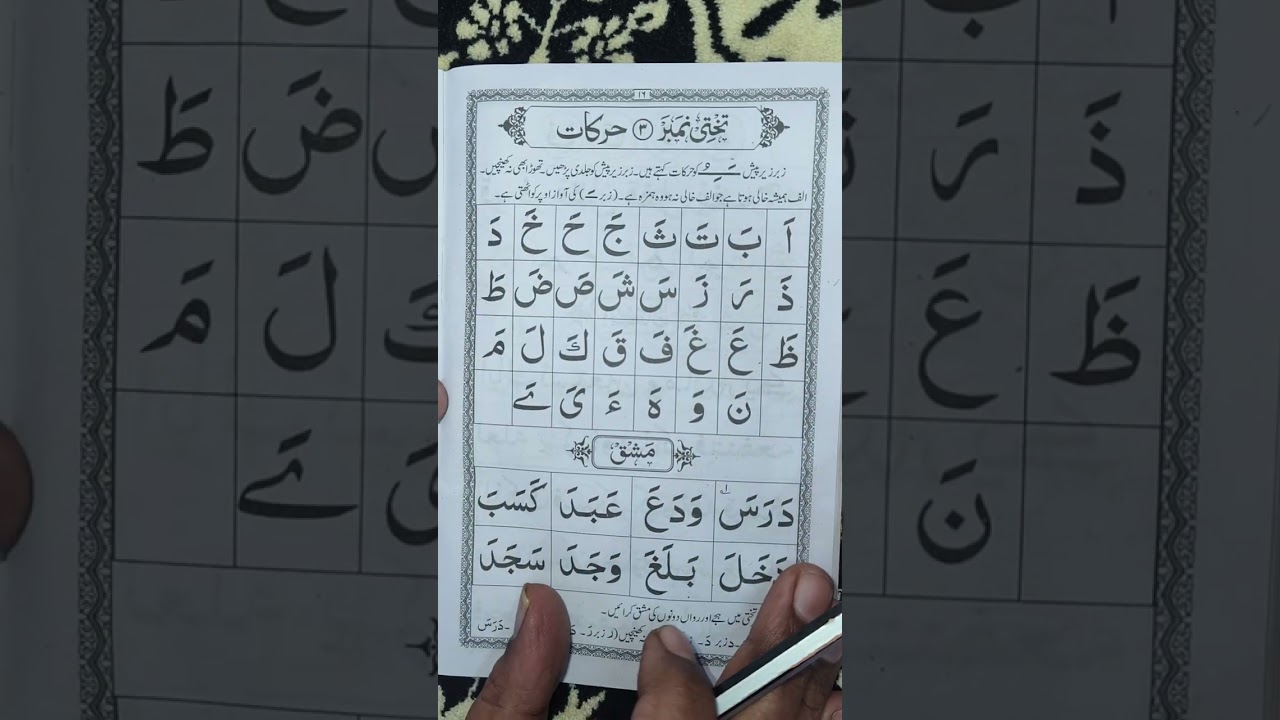 ١٦
تختی نمبر ٣ حرکات
زبر زیر پیش ـَـِـُ کو حرکات کہتے ہیں۔ زبر زیر پیش کو جلدی پڑھیں۔ تھوڑا بھی نہ کھینچیں۔
الف ہمیشہ خالی ہوتا ہے جو الف خالی نہ ہو وہ ہمزہ ہے۔ (زبر ـَ) کی آواز اوپر کو اٹھتی ہے۔
اَ بَ تَ ثَ جَ حَ خَ دَ
ذَ رَ زَ سَ شَ صَ ضَ طَ
ظَ عَ غَ فَ قَ كَ لَ مَ
نَ وَ هَ ءَ یَ ےَ
مشق
دَرَسَ وَدَعَ عَبَدَ كَسَبَ
دَخَلَ بَلَغَ وَجَدَ سَجَدَ
تختی میں ہجے اور رواں دونوں کی مشق کرائیں۔
دزبر دَ۔ کھینچیں (رزبر رَ۔ دَرَسَ